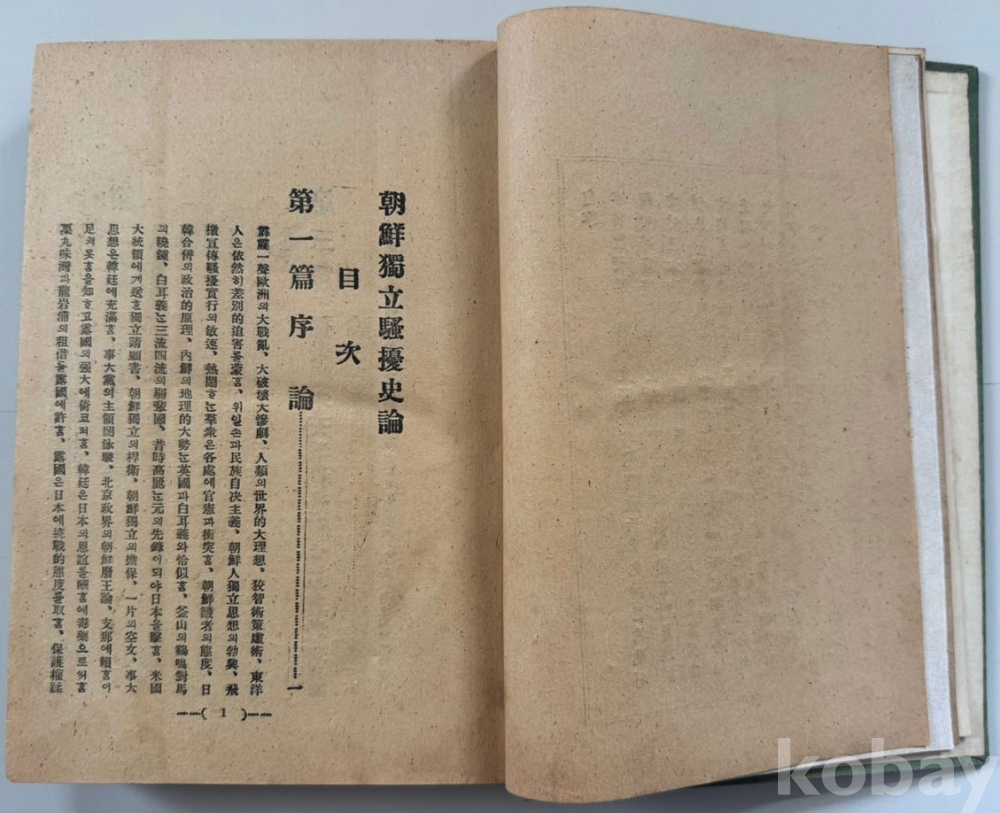 朝鮮獨立騷擾史論
目次
第一篇 序論………………一
霹靂一聲歐洲의大戰亂、大破壞大慘劇、人類의世界的大理想、狡智術策慮術、東洋
人은依然히差別的迫害를蒙홈、위일손과民族自決主義、朝鮮人獨立思想의勃興、飛
檄宣傳騷擾實行의敏速、熱閙하는羣衆은各處에官憲과衝突홈、朝鮮識者의態度、日
韓合併의政治的原理、內鮮의地理的大勢는英國과白耳義와恰似홈、釜山의鷄鳴對馬
의曉鐘、白耳義는三流四流의弱國、昔時高麗는元의先鋒이되야日本을擊홈、米國
大統領에게送혼獨立請願書、朝鮮獨立의桿衛、朝鮮獨立의擔保、一片의空文、事大
思想은韓廷에充滿홈、事大黨의主領閔泳駿、北京政界의朝鮮廢王論、支那에賴홈이
足치못홈을知하고露國의强大에倚코저홈、韓廷은日本의恩誼를酬홈에毒藥으로써홈
栗九味灣과龍岩浦의租借를露國에許홈、露國은日本에挑戰的態度를取홈、保護權
—( 1 )—
kobay